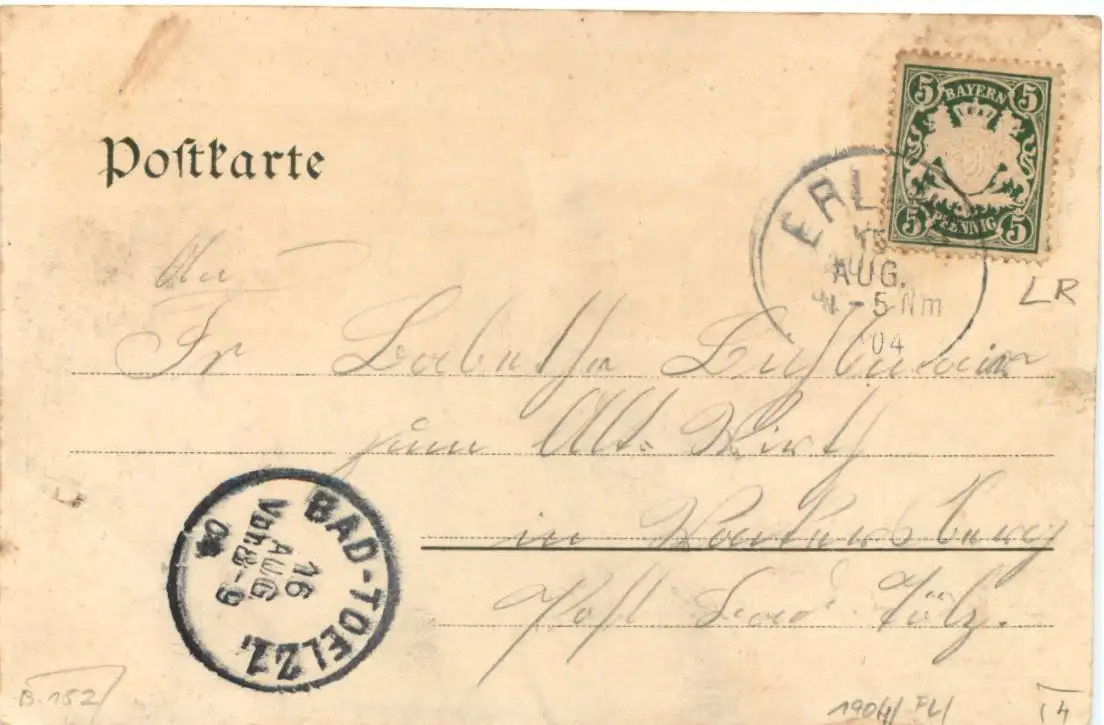 Postkarte
5 BAYERN 5
5 PFENNIG 5
ERL
15
AUG.
4-5 Nm
04
LR
An
Fr
zum Alt. Wirth
in
Post Bad Tölz.
BAD-TOELZ 1.
16
AUG
Vbh. 8-9
04
B. 152
1904 FL